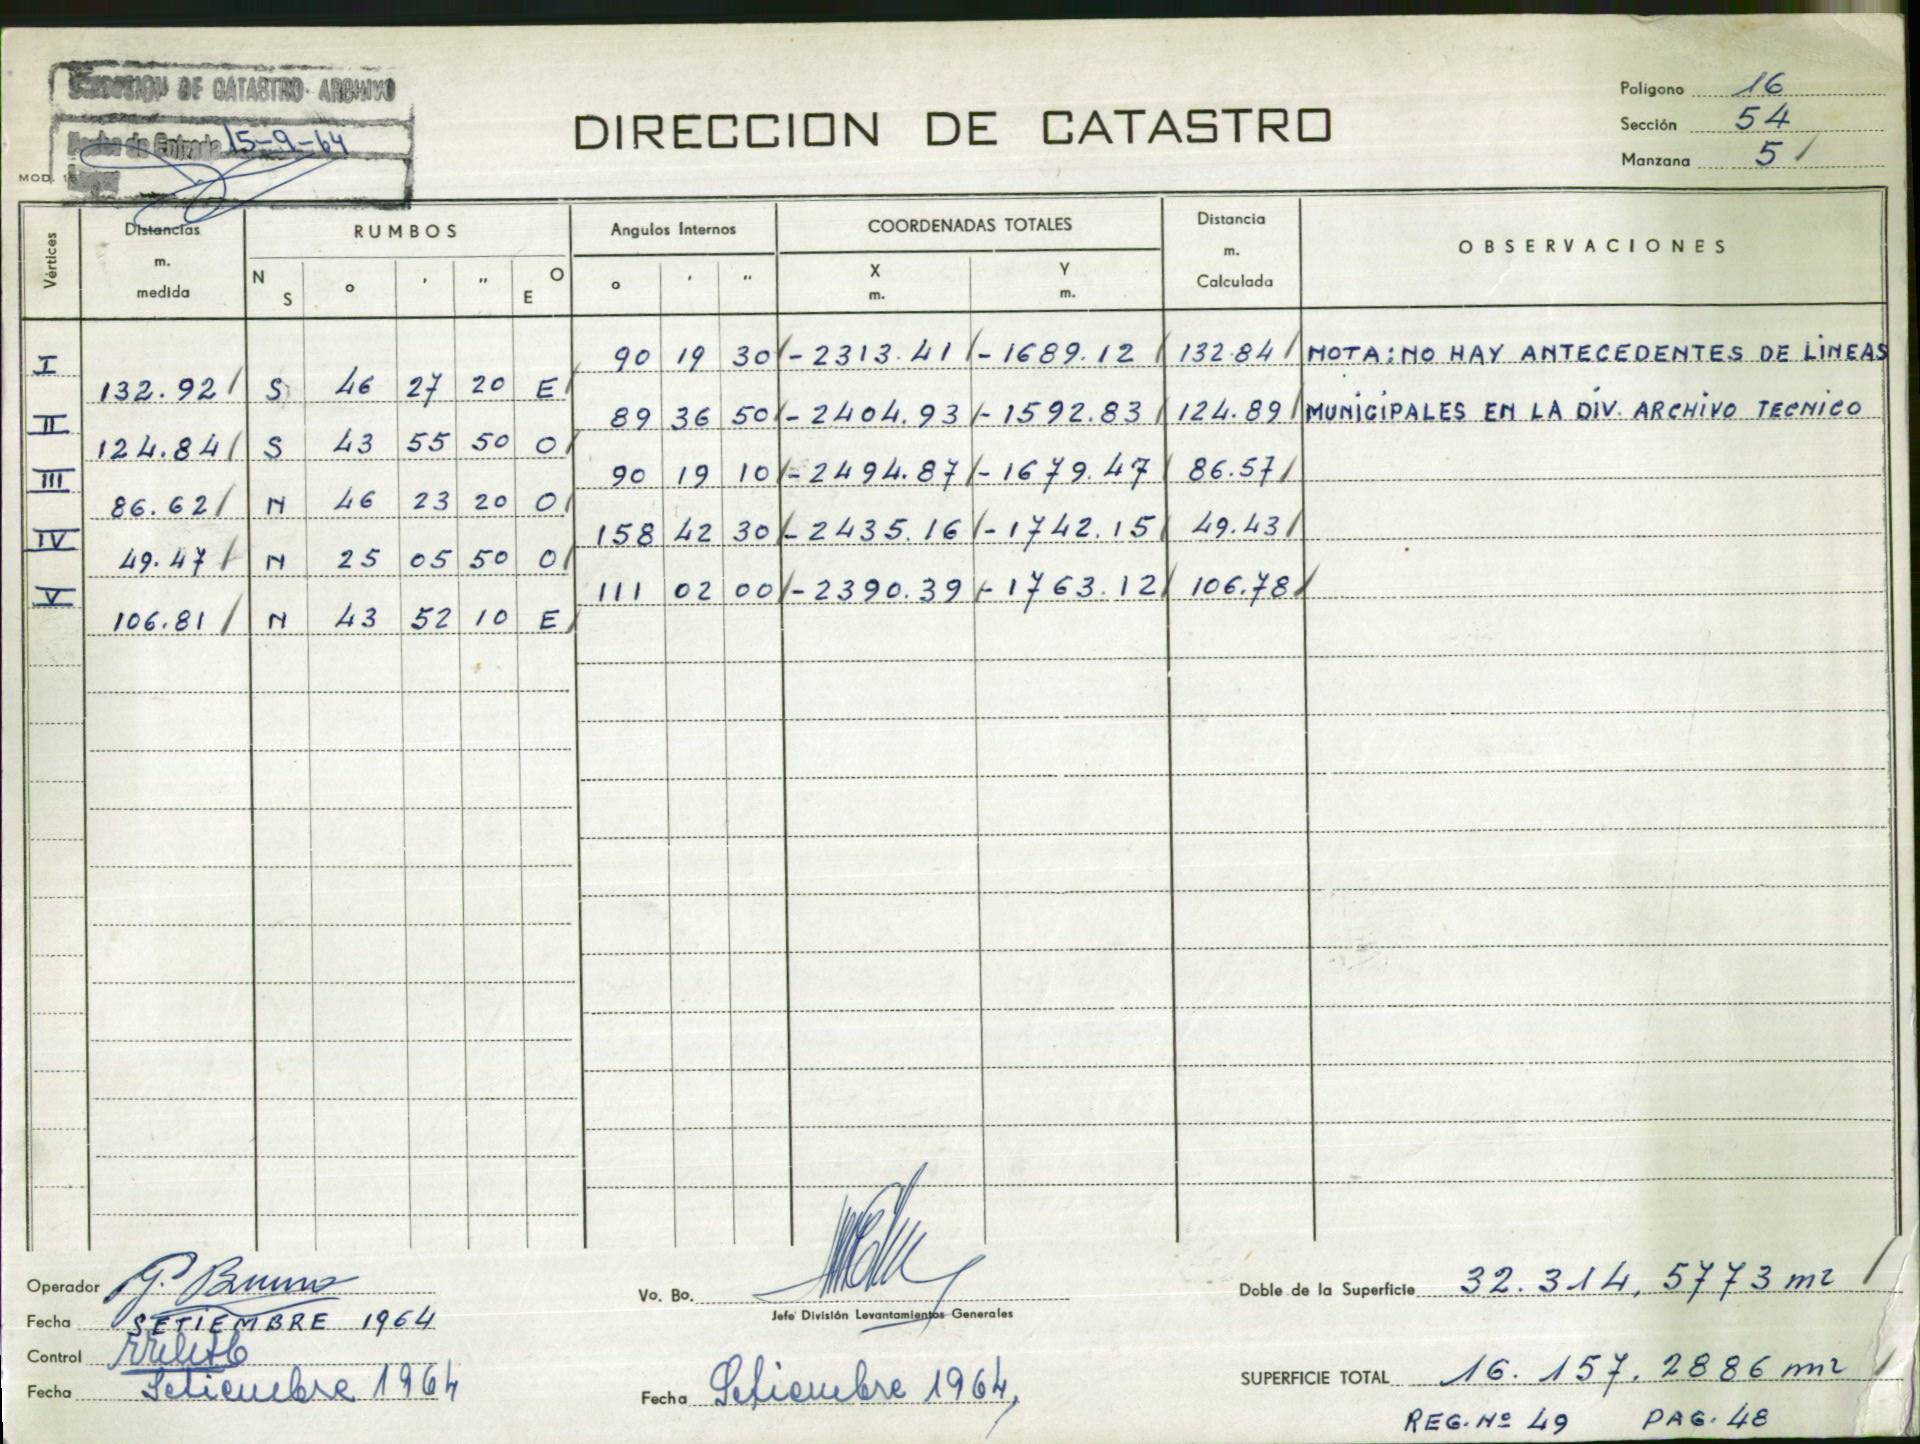 DIRECCION DE CATASTRO ARCHIVO
Fecha de Entrada 15-9-64
MOD.
DIRECCION DE CATASTRO
Polígono 16
Sección 54
Manzana 5
Vértices
Distancias m. medida
RUMBOS
N S ° ' " E O
Angulos Internos
° ' "
COORDENADAS TOTALES
X m. Y m.
Distancia m. Calculada
OBSERVACIONES
I 90 19 30 -2313.41 -1689.12 132.84 NOTA: NO HAY ANTECEDENTES DE LINEAS
132.92 S 46 27 20 E
II 89 36 50 -2404.93 -1592.83 124.89 MUNICIPALES EN LA DIV. ARCHIVO TECNICO
124.84 S 43 55 50 O
III 90 19 10 -2494.87 -1679.47 86.57
86.62 N 46 23 20 O
IV 158 42 30 -2435.16 -1742.15 49.43
49.47 N 25 05 50 O
V 111 02 00 -2390.39 -1763.12 106.78
106.81 N 43 52 10 E
Operador G. Bruno
Fecha SETIEMBRE 1964
Control
Fecha Setiembre 1964
Vo. Bo.
Jefe División Levantamientos Generales
Fecha Setiembre 1964,
Doble de la Superficie 32.314,5773 m2
SUPERFICIE TOTAL 16.157.2886 m2
REG. Nº 49 PAG. 48